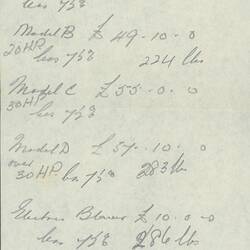 less 7½%
Model B £ 49-10-0
20 HP less 7½% 224 lbs
Model C £ 55-0-0
30 HP less 7½%
Model D £ 57-10-0
over 30 HP less 7½% 283 lb
Electric Blower £ 10-0-0
less 7½% 286 lb